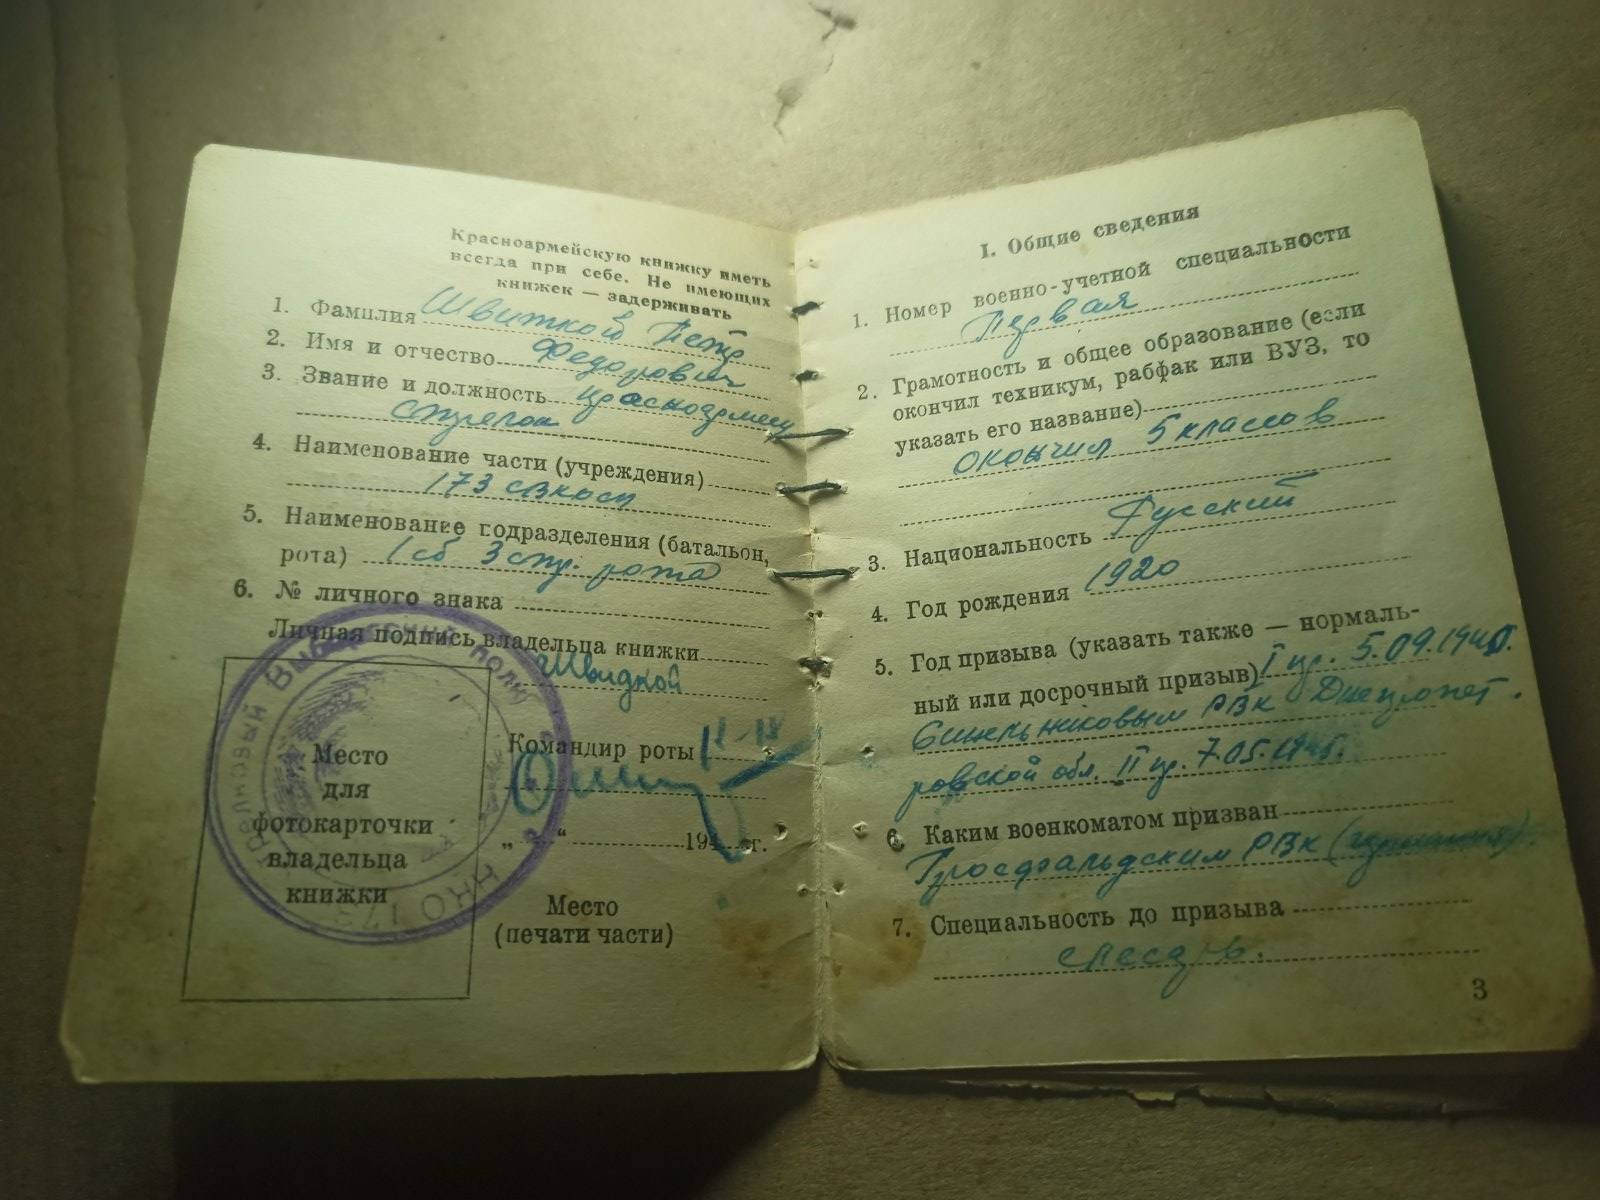 Красноармейскую книжку иметь
всегда при себе. Не имеющих
книжек — задерживать
1. Фамилия Швиткой Петр
2. Имя и отчество Федорович
3. Звание и должность красноармеец
стрелок
4. Наименование части (учреждения)
173
5. Наименование подразделения (батальон,
рота) 1 сб 3 стр. рота
6. № личного знака
Личная подпись владельца книжки
Швидкой
Место
для
фотокарточки
владельца
книжки
Командир роты
„ “ 194 г.
Место
(печати части)
I. Общие сведения
1. Номер военно-учетной специальности
Первая
2. Грамотность и общее образование (если
окончил техникум, рабфак или ВУЗ, то
указать его название)
окончил 5 классов
3. Национальность Русский
4. Год рождения 1920
5. Год призыва (указать также — нормаль-
ный или досрочный призыв) I пр. 5.09.1940.
Синельниковым РВК Днепропет.
ровской обл. II пр. 7.05.1945.
6. Каким военкоматом призван
РВК
7. Специальность до призыва
слесарь.
3